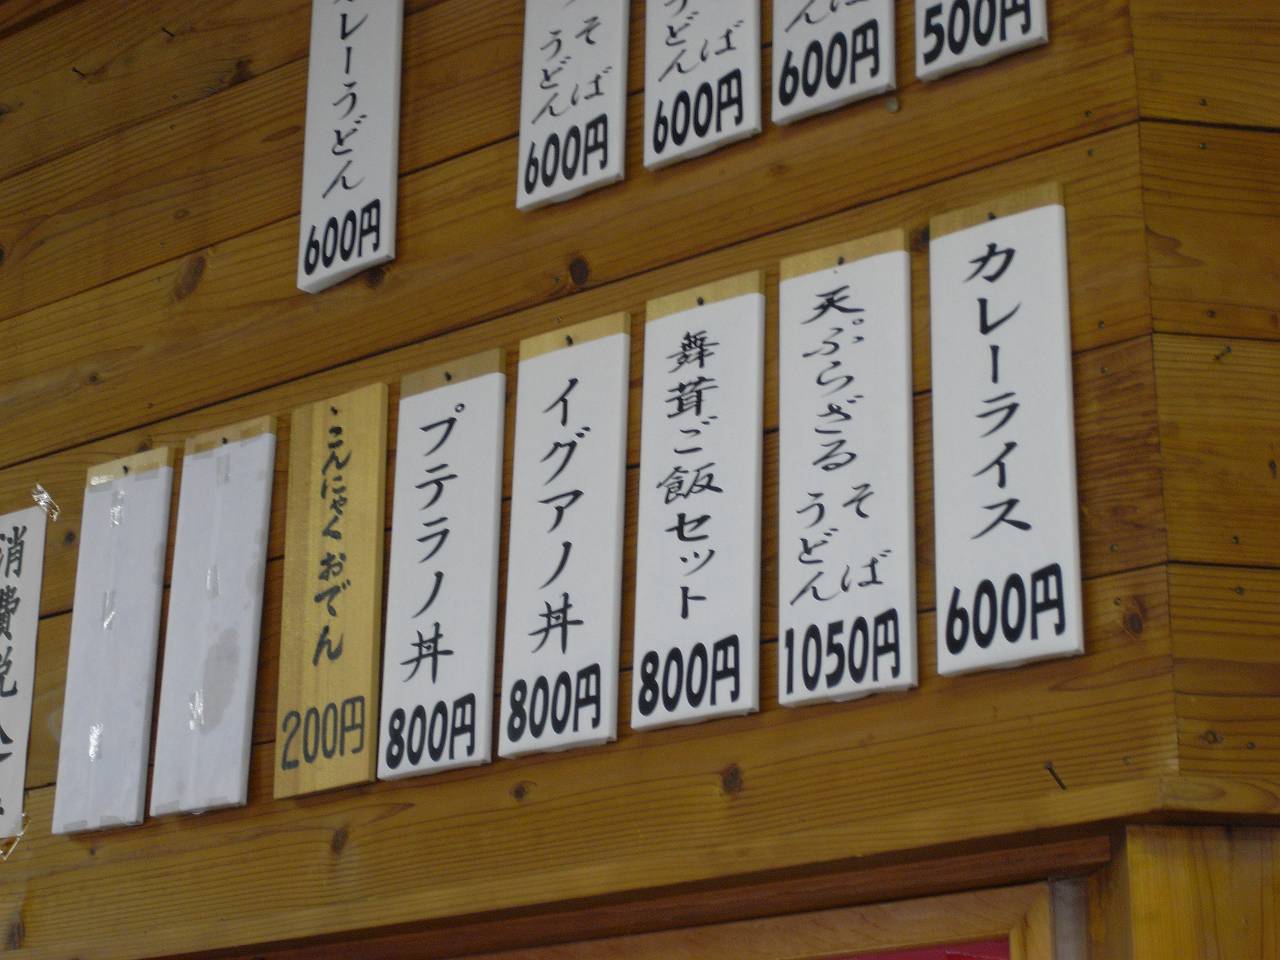 カレーライス
600円
天ぷらざる
そば
うどん
1050円
舞茸ご飯セット
800円
イグアノ丼
800円
プテラノ丼
800円
こんにゃくおでん
200円
500円
600円
そば
うどん
600円
そば
うどん
600円
カレーうどん
600円
消費税込